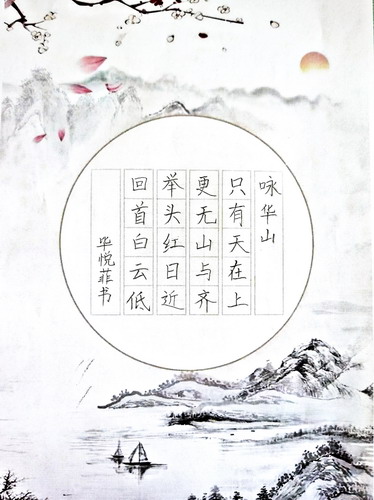 咏华山
只有天在上
更无山与齐
举头红日近
回首白云低
毕悦菲书